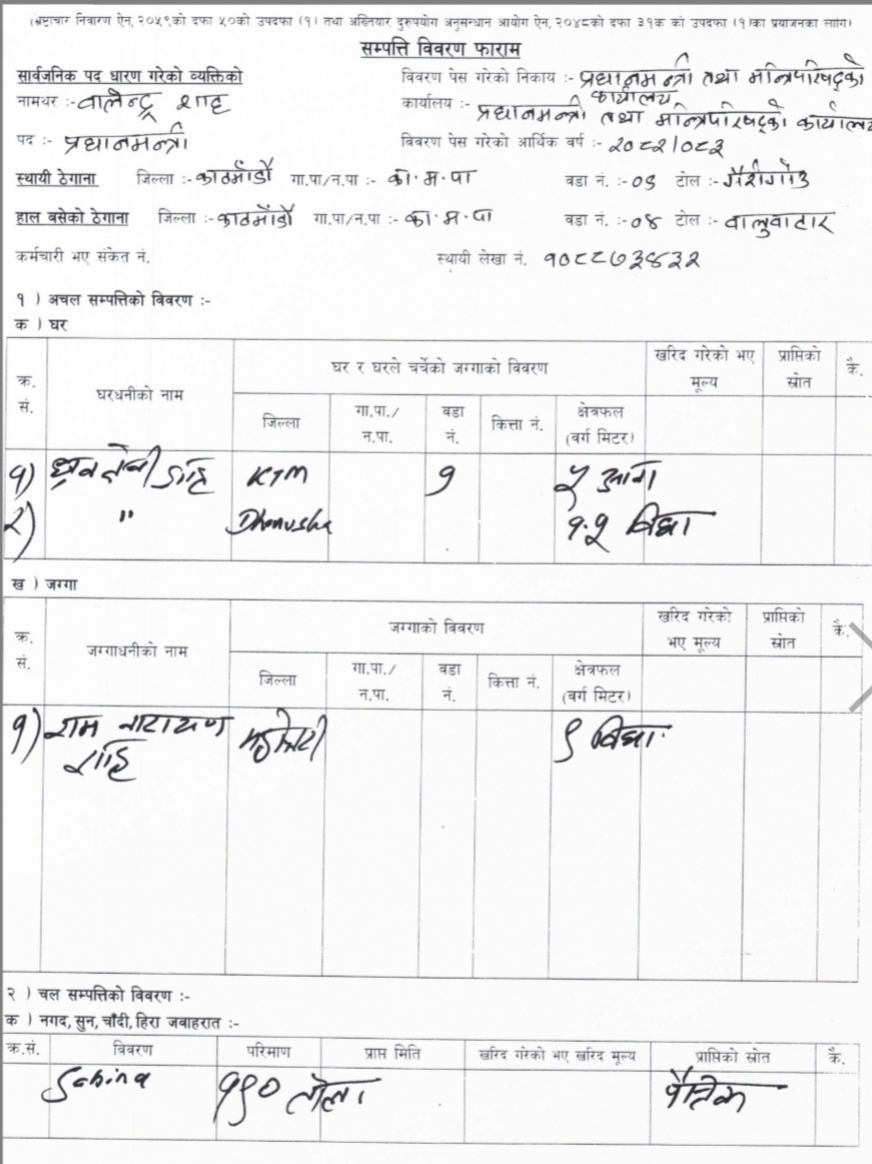 (भ्रष्टाचार निवारण ऐन, २०५९को दफा ५०को उपदफा (१) तथा अख्तियार दुरुपयोग अनुसन्धान आयोग ऐन, २०४८को दफा ३१क को उपदफा (१)का प्रयोजनका लागि)
सम्पत्ति विवरण फाराम
सार्वजनिक पद धारण गरेको व्यक्तिको
विवरण पेस गरेको निकाय :- प्रधानमन्त्री तथा मन्त्रिपरिषद्को कार्यालय
नामथर :- वालेन्द्र शाह
कार्यालय :- प्रधानमन्त्री तथा मन्त्रिपरिषद्को कार्यालय
पद :- प्रधानमन्त्री
विवरण पेस गरेको आर्थिक वर्ष :- २०८२/०८३
स्थायी ठेगाना जिल्ला :- काठमाँडौ गा.पा/न.पा :- का.म.पा वडा नं. :- टोल :- गैरीगाँउ
हाल बसेको ठेगाना जिल्ला :- काठमाँडौ गा.पा/न.पा :- का.म.पा वडा नं. :- ०४ टोल :- वालुवाटार
कर्मचारी भए संकेत नं. स्थायी लेखा नं.
१ ) अचल सम्पत्तिको विवरण :-
क ) घर
क्र.सं. घरधनीको नाम घर र घरले चर्चेको जग्गाको विवरण खरिद गरेको भए मूल्य प्राप्तिको स्रोत कै.
जिल्ला गा.पा./न.पा. वडा नं. कित्ता नं. क्षेत्रफल (वर्ग मिटर)
१) ध्रुव देवी शाह KTM ९ ५ आना
२) " Dhanusha १.५ बिघा
ख ) जग्गा
क्र.सं. जग्गाधनीको नाम जग्गाको विवरण खरिद गरेको भए मूल्य प्राप्तिको स्रोत कै.
जिल्ला गा.पा./न.पा. वडा नं. कित्ता नं. क्षेत्रफल (वर्ग मिटर)
१) राम नारायण शाह महोत्तरी बिघा
२ ) चल सम्पत्तिको विवरण :-
क ) नगद, सुन, चाँदी, हिरा जवाहरात :-
क्र.सं. विवरण परिमाण प्राप्त मिति खरिद गरेको भए खरिद मूल्य प्राप्तिको स्रोत कै.
Sabina तोला पैत्रिक